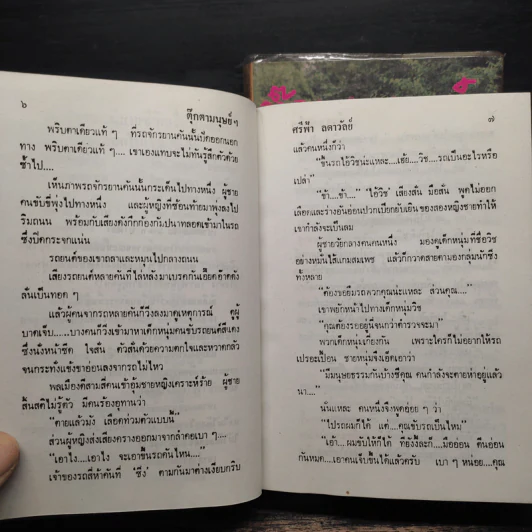 ๖
ตุ๊กตามนุษย์ ๆ
พริบตาเดียวแท้ ๆ ที่รถจักรยานคันนั้นปัดออกนอก
ทาง พริบตาเดียวแท้ ๆ.... เขาเองแทบจะไม่ทันรู้สึกตัวด้วย
ซ้ำไป....
เห็นภาพรถจักรยานคันนั้นกระเด็นไปทางหนึ่ง ผู้ชาย
คนขับขี่พุ่งไปทางหนึ่ง และผู้หญิงที่ซ้อนท้ายมาพุ่งลงไป
ริมถนน พร้อมกับเสียงดังกึกก้องกัมปนาทลอดเข้ามาในรถ
ซึ่งปิดกระจกแน่น
รถยนต์ของเขาถลาและหมุนไปกลางถนน
เสียงรถยนต์หลายคันที่ไล่หลังมาเบรคกันเอี๊ยดอ๊าดดัง
ลั่นเป็นทอด ๆ
แล้วผู้คนจากรถหลายคันก็วิ่งลงมาดูเหตุการณ์ ดูผู้
บาดเจ็บ.....บางคนก็วิ่งเข้ามาหาเด็กหนุ่มคนขับรถยนต์สีแดง
ซึ่งนั่งหน้าซีด ใจสั่น ตัวสั่นด้วยความตกใจและหวาดกลัว
จนกระทั่งแข้งขาอ่อนลงจากรถไม่ไหว
พลเมืองดีสามสี่คนเข้าอุ้มชายหญิงเคราะห์ร้าย ผู้ชาย
สิ้นสติไม่รู้ตัว มีคนร้องอุทานว่า
“ตายแล้วมัง เลือดท่วมตัวแบบนี้”
ส่วนผู้หญิงส่งเสียงครางออกมาจากลำคอเบา ๆ....
“เอาไง....เอาไง จะเอาขึ้นรถคันไหน....”
เจ้าของรถสี่ห้าคันที่ “ซิ่ง” ตามกันมาต่างเงียบกริบ
ศรีฟ้า ลดาวัลย์
๗
แล้วคนหนึ่งก็ว่า
“ขึ้นรถไอ้วิชน่ะแหละ....เฮ้ย....วิช....รถเป็นอะไรหรือ
เปล่า”
“ข้า....ข้า....” ไอ้วิช เสียงสั่น มือสั่น พูดไม่ออก
เลือดและร่างอันอ่อนปวกเปียกยับเยินของสองหญิงชายทำให้
เขากำลังจะเป็นลม
ผู้ชายวัยกลางคนคนหนึ่ง มองดูเด็กหนุ่มที่ชื่อวิช
อย่างหมั่นไส้แกมสมเพช แล้วก็กวาดสายตามองกลุ่มนักซิ่ง
ทั้งหลาย
“ต้องขอยืมรถพวกคุณน่ะแหละ ส่วนคุณ....”
เขาพยักหน้าไปทางเด็กหนุ่มวิช
“คุณต้องรออยู่นี่จนกว่าตำรวจจะมา”
พวกเด็กหนุ่มเกี่ยงกัน เพราะใครก็ไม่อยากให้รถ
เปรอะเปื้อน ชายหนุ่มจึงเอ็ดเอาว่า
“มีมนุษยธรรมกันบ้างซีคุณ คนกำลังจะตายห่าอยู่แล้ว
นา....”
นั่นแหละ คนหนึ่งจึงพูดอ่อย ๆ ว่า
“ไปรถผมก็ได้ แต่....คุณขับรถเป็นไหม”
“เอ๊า....ผมขับให้ก็ได้ ท้องงี้ละก็....มืออ่อน ตีนอ่อน
กันหมด....เอาคนเจ็บขึ้นได้แล้วครับ เบา ๆ หน่อย....คุณ